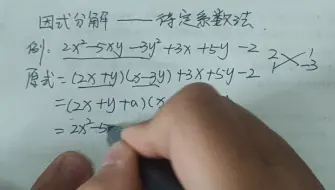 因式分解——待定系数法
例: 2x²-5xy-3y²+3x+5y-2
2 1
1 -3
原式=(2x+y)(x-3y)+3x+5y-2
=(2x+y+a)(x
=2x²-5